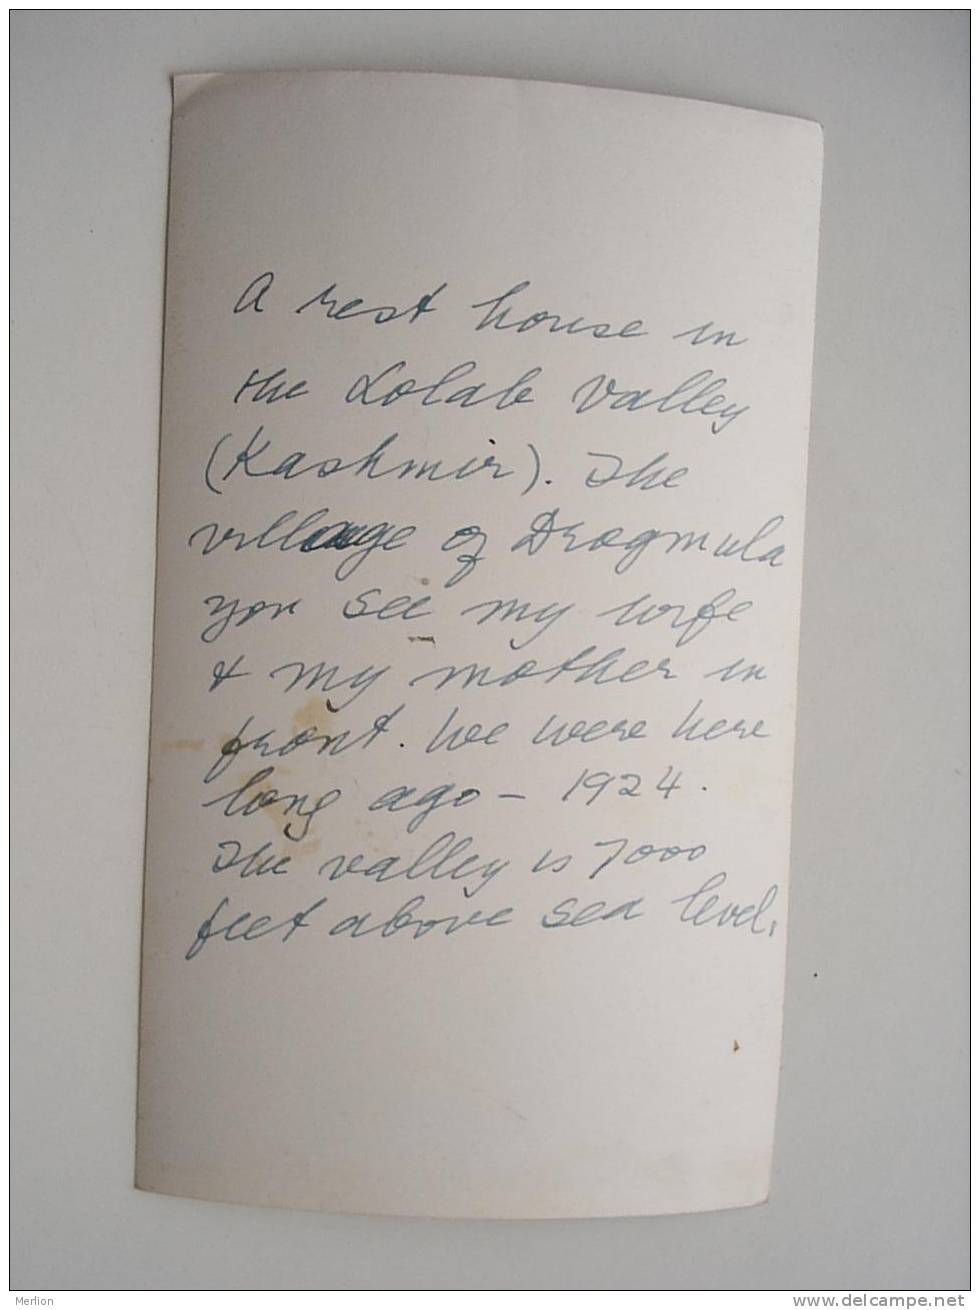 A rest house in
the Lolab Valley
(Kashmir). The
village of Drogmula
you see my wife
& my mother in
front. We were here
long ago – 1924.
The valley is 7000
feet above sea level.
Merlion
www.delcampe.net